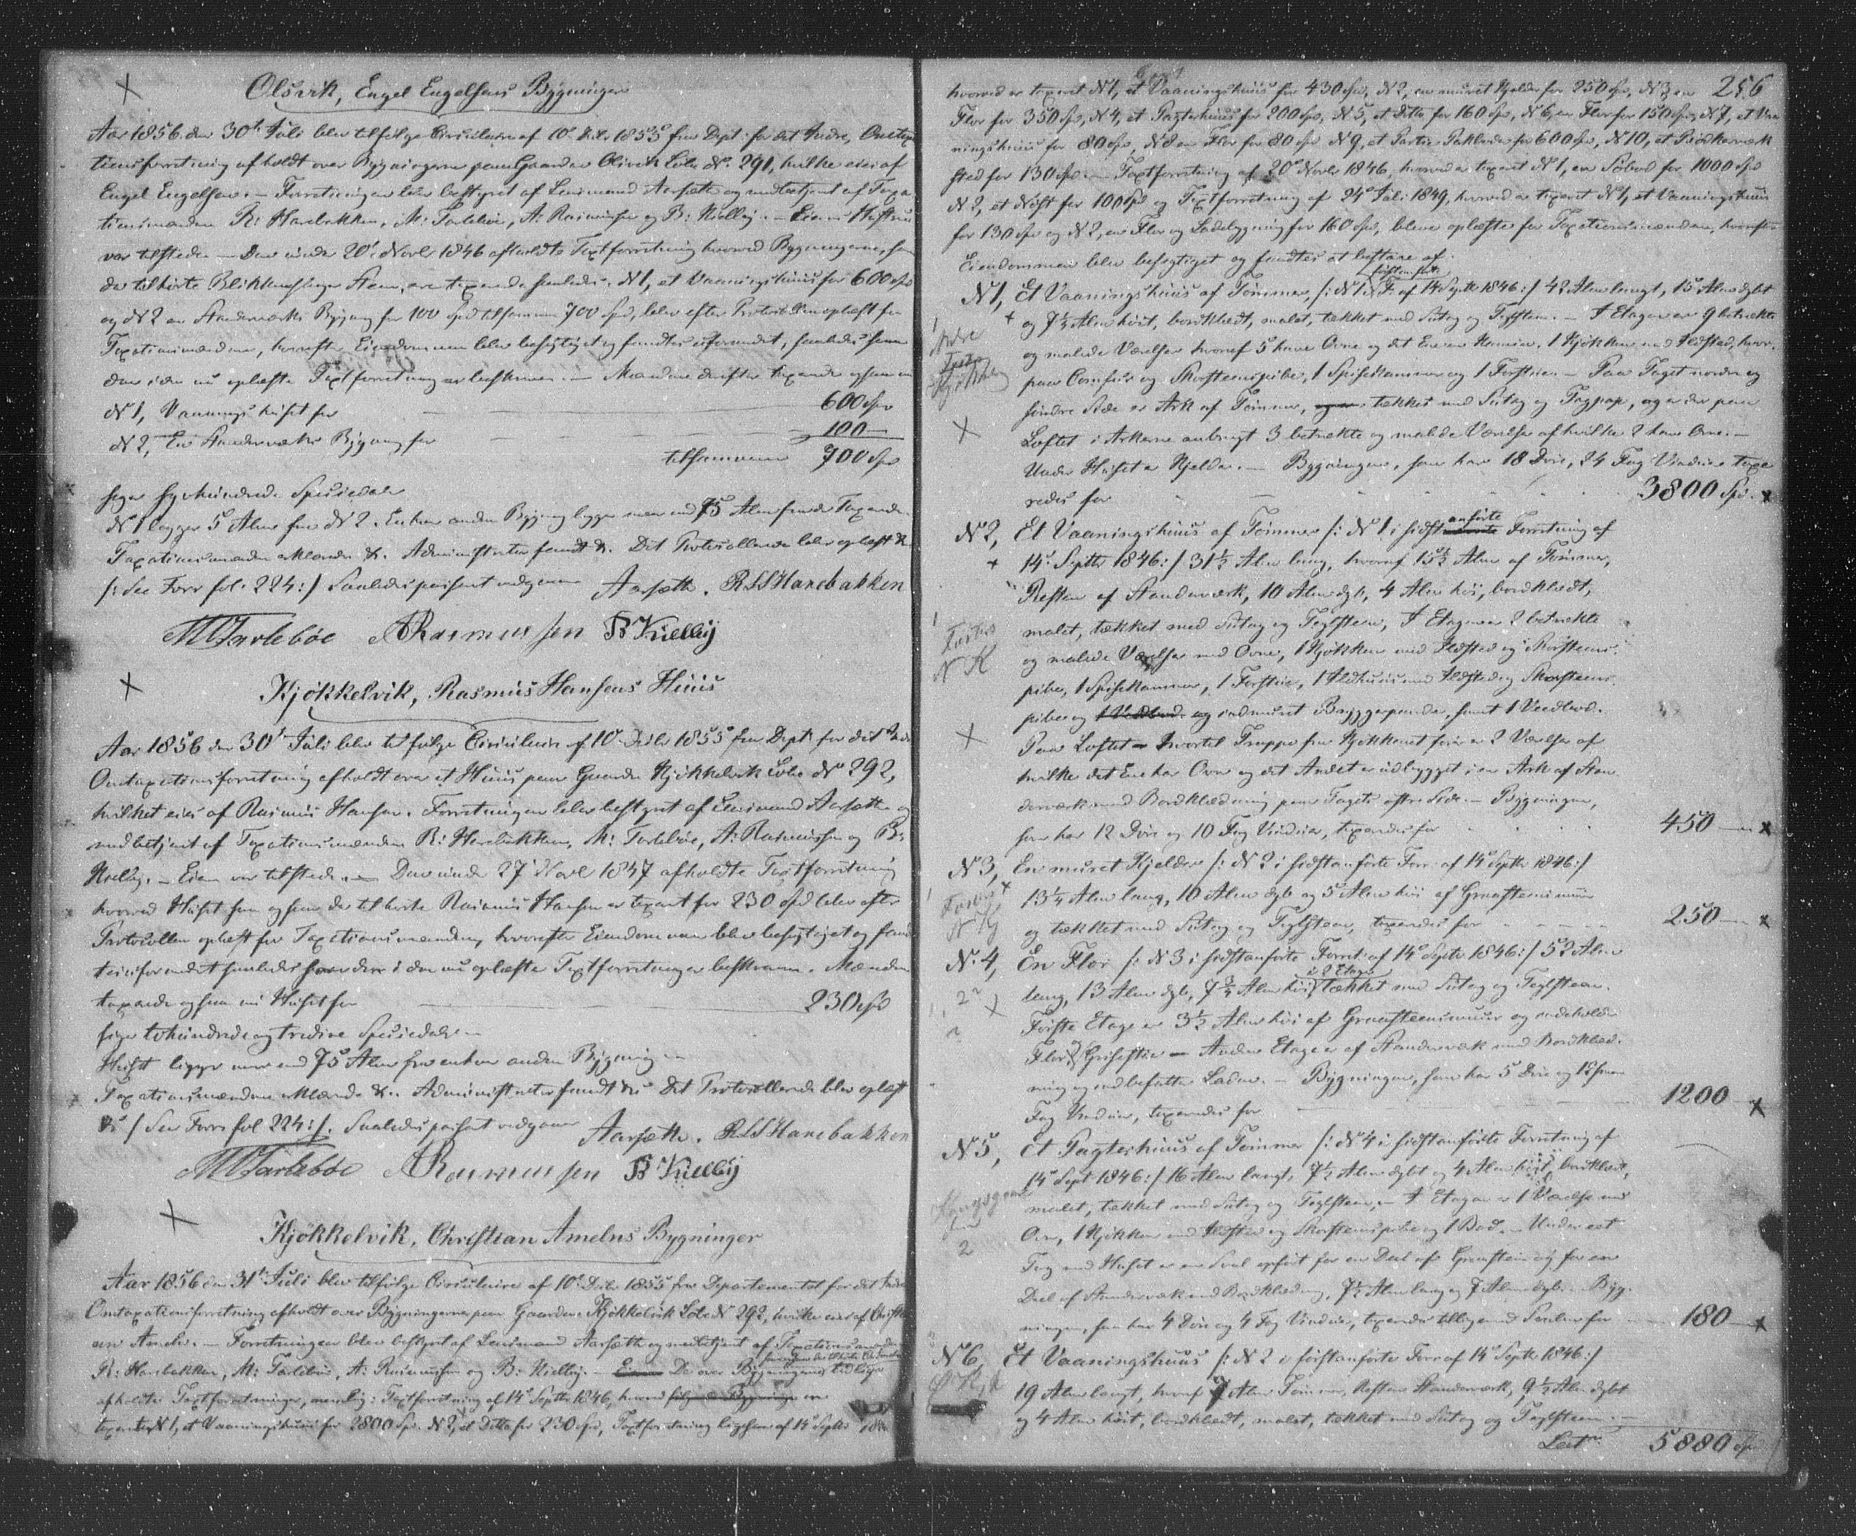 Olsvik, Engel Engelsens Bygninger
Aar 1856 den 30te Juli blev tilfølge Circulaire af 10de Dcbr. 1855 fra Dept: for det Indre, Omtaxa
tionsforretning afholdt over Bygningerne paa Gaarden Olsvik Løbe No. 291, hvilke eies af
Engel Engelsen. – Forretningen blev bestyret af Lensmand Aarsæth og medbetjent af Taxa
tionsmænden R: Hanebakken, M: Tarlebøe, A: Rasmussen og B: Kielby. – Eierens Hustru
var tilstede. – Den under 20de Novbr 1846 afholdte Taxtforretning hvorved Bygningerne, som
da tilhørte Steen, ere taxerede saaledes: N 1, et Vaaningshuus for 600 Spd
og N 2 en Standerværks Bygning for 100 Spd tilsammen 700 Spd, blev efter Protocollen oplæst for
Taxationsmændene, hvorefter Eiendommen blev besigtiget og fandtes uforandret, saaledes som
den i den nu oplæste Taxtforretning er beskreven. – Mændene derefter taxerede ogsaa nu
N 1, Vaaningshuset for 600 Spd
N 2, En Standerværks Bygning for 100 –
tilsammen 700 Spd
siger syvhundrede Speciedaler
N 1 ligger 5 Alen fra N 2. Enhver anden Bygning ligger mere end 75 Alen fra de Taxerede.
Taxationsmændene erklærede &c. Administrator fandt &c. Det Protocollerede blev oplæst &c
/: See Forr fol. 224:/ Saaledes passeret vidner Aarsæth. R S S Hanebakken
M Tarlebøe A Rasmussen B Kielby
Kjøkkelvik, Rasmus Hansens Huus
Aar 1856 den 30te Juli blev tilfølge Circulaire af 10de Dcbr 1855 fra Dept: for det Indre
Omtaxationsforretning afholdt over et Huus paa Gaarden Kjøkkelvik Løbe No 292,
hvilket eies af Rasmus Hansen. Forretningen blev bestyret af Lensmand Aarsæth og
medbetjent af Taxationsmænden R: Hanebakken, M: Tarlebøe, A: Rasmussen og B:
Kielby. – Eieren var tilstede. – Den under 27de Novbr 1847 afholdte Taxtforretning
hvorved Huset som ogsaa da tilhørte Rasmus Hansen er taxeret for 230 Spd blev efter
Protocollen oplæst for Taxationsmændene, hvorefter Eiendommen blev besigtiget og fand
tes uforandret saaledes som den i den nu oplæste Taxtforretning er beskreven. Mændene
taxerede ogsaa nu Huset for 230 Spd
siger tohundrede og tredive Speciedaler –
Huset ligger mere end 75 Alen fra enhver anden Bygning –
Taxationsmændene erklærede &c. Administrator fandt &c. Det Protocollerede blev oplæst
&c /: See Forr fol 224:/. Saaledes passeret vidner Aarsæth. R S S Hanebakken
M Tarlebøe A Rasmussen B Kielby
Kjøkkelvik, Christian Amelns Bygninger
Aar 1856 den 31te Juli blev tilfølge Circulaire af 10de Dcbr 1855 fra Departementet for det Indre
Omtaxationsforretning afholdt over Bygningerne paa Gaarden Kjøkkelvik Løbe N 292, hvilke eies af Christi
an Ameln. – Forretningen blev bestyret af Lensmand Aarsæth og medbetjent af Taxationsmænden
R: Hanebakken, M: Tarlebøe, A: Rasmussen og B: Kielby. – De over Bygningerne tidligere
afholdte Taxtforretninger, nemlig: Taxtforretning af 14de Septbr 1846, hvorved følgende Bygninger ere
taxerede N 1, et Vaaningshuus for 2800 Spd. N 2, et Ditto for 230 Spd, Taxtforretning ligesaa af 14de Septbr 1846
256
hvorved er taxeret N 1, et Vaaningshuus for 430 Spd, N 2, en muret Kjelder for 250 Spd, N 3 en
Flor for 350 Spd, N 4, et Pagterhuus for 200 Spd, N 5, et Ditto for 160 Spd, N 6, en Flor for 150 Spd, N 7, et Vaa
ningshuus for 80 Spd, N 8 en Flor for 80 Spd N 9, et Parti Pakboder for 600 Spd, N 10, et Bødkerværk
sted for 130 Spd. – Taxtforretning af 20de Novbr 1846, hvorved er taxeret N 1, en Søbod for 1000 Spd
N 2, et Nøst for 100 Spd og Taxtforretning af 24de Juli 1849, hvorved er taxeret N 1, et Vaaningshuus
for 130 Spd og N 2, en Flor og Ladebygning for 160 Spd, bleve oplæste for Taxationsmændene, hvorefter
Eiendommen blev besigtiget og fandtes at bestaae af:
N 1, Et Vaaningshuus af Tømmer /: N 1 i F. af 14 Septbr 1846:/ 42 Alen langt, 15 Alen dybt
og 7½ Alen høit, bordklædt, malet, tækket med Sutag og Teglsteen. – I Etagen er 9 betrukne
og malede Værelser hvoraf 5 have Ovne og det Ene en Kamin, 1 Kjøkken med Ildsted, hvor
paa Comfur og Skorsteenspibe, 1 Spisekammer og 1 Forstue. – Paa Taget nordre og
søndre Side er Ark af Tømmer, tækket med Sutag og Tagpap, og er der paa
Loftet i Arkerne anbragt 3 betrukne og malede Værelser af hvilke 2 have Ovne. –
Under Huset er Kjelder. – Bygningen, som har 18 Døre, 24 Fag Vinduer taxe
redes for 3800 Spd.
N 2, Et Vaaningshuus af Tømmer /: N 1 i sidst anførte Forretning af
14de Septbr 1846:/ 31½ Alen lang, hvoraf 15½ Alen af Tømmer,
Resten af Standerværk, 10 Alen dyb, 4 Alen høi, bordklædt,
malet, tækket med Sutag og Teglsteen, I Etagen er 2 betrukne
og malede Værelser med Ovne, 1 Kjøkken med Ildsted og Skorsteens
pibe, 1 Spisekammer, 1 Forstue, 1 Ildhuus med Ildsted og Skorsteens
pibe og indmuret Bryggepande, samt 1 Vedbod.
Paa Loftet hvortil Trappe fra Kjøkkenet findes 2 Værelser af
hvilke det Ene har Ovn og det Andet er udbygget i en Ark af Stan
derværk med Bordklædning paa Tagets østre Side. – Bygningen,
som har 12 Døre og 10 Fag Vinduer, taxeredes for 450 –
N 3, En muret Kjelder /: N 2 i sidstanførte Forr: af 14de Septbr 1846:/
13¼ Alen lang, 10 Alen dyb og 5 Alen høi af Graasteensmuur
og tækket med Sutag og Teglsteen, taxeredes for 250 –
N. 4, En Flor /: N 3 i sidstanførte Forret: af 14de Septbr 1846:/ 52 Alen
lang, 13 Alen dyb, 7¾ Alen høi i 2 Etager tækket med Sutag og Teglsteen.
Første Etage er 3½ Alen høi af Graasteensmuur og indeholder
Flor og Grisestie – Anden Etage er af Standerværk med Bordklæd
ning og indbefatter Laden. – Bygningen, som har 5 Døre og 12 smaa
Fag Vinduer, taxeredes for 1200 –
N 5, Et Pagterhuus af Tømmer /: N 4 i sidstanførte Forretning af
14de Sept 1846:/ 16 Alen langt, 7½ Alen dybt og 4 Alen høit, bordklædt,
malet, tækket med Sutag og Teglsteen, – I Etagen er 1 Værelse med
Ovn, 1 Kjøkken med Ildsted og Skorsteenspibe og 1 Bod. – Under eet
Tag med Huset er en Sval opført for en Deel af Graasteen og for en
Deel af Standerværk med Bordklædning, 7½ Alen lang og 7 Alen dyb. – Byg
ningen, som har 4 Døre og 4 Fag Vinduer, taxeredes tilligemed Svalen for 180 –
N 6, Et Vaaningshuus /: N 2 i førstanførte Forr af 14de Septbr 1846:/
19 Alen langt, hvoraf 7 Alen Tømmer, Resten Standerværk, 9½ Alen dybt
og 4 Alen høit, bordklædt, malet, tækket med Sutag og Teglsteen. –
Lat. 5880 Spd